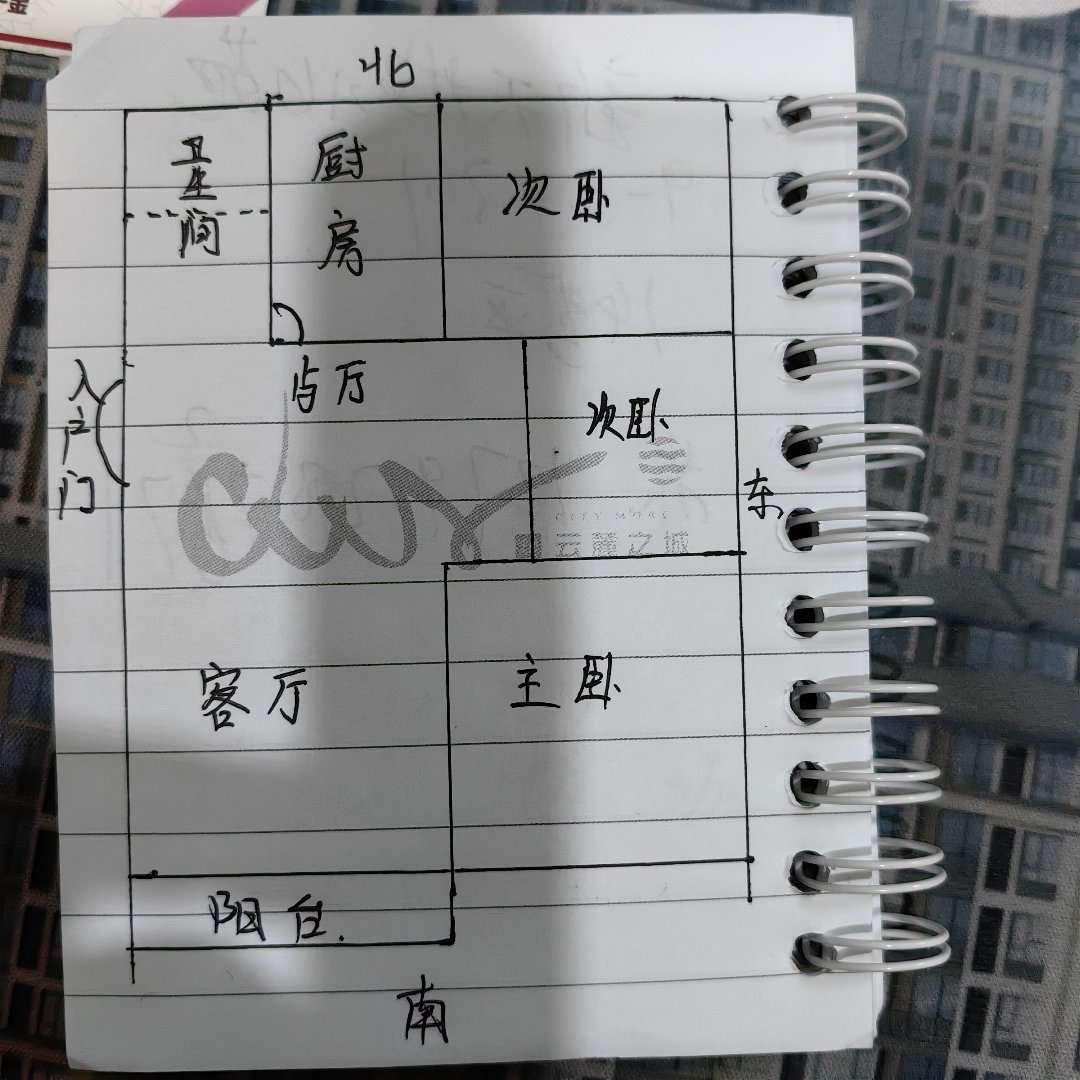 北
卫生间
厨房
次卧
入户门
与厅
次卧
东
CITY MORE
云麓之城
客厅
主卧
阳台.
南